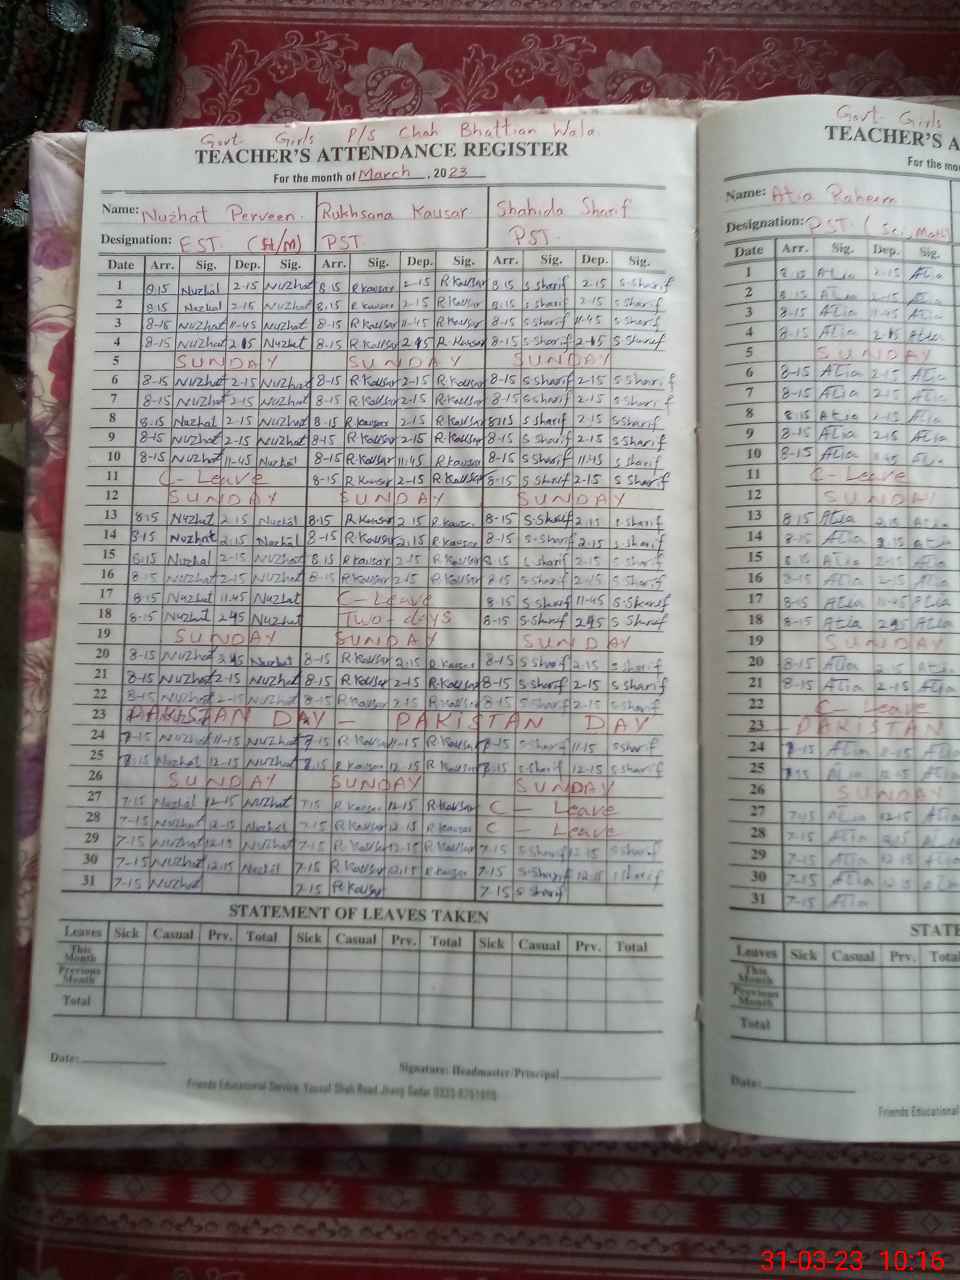 Govt. Girls P/S Chah Bhattian Wala
TEACHER'S ATTENDANCE REGISTER
For the month of March, 2023
Name: Nuzhat Perveen. Rukhsana Kausar Shahida Sharif
Designation: EST. PST. PST.
Date Arr. Sig. Dep. Sig. Arr. Sig. Dep. Sig. Arr. Sig. Dep. Sig.
1 8.15 Nuzhat 2-15 Nuzhat 8.15 R Kausar 2-15 R Kausar 8.15 S Sharif 2-15 S-Sharif
2 8.15 Nuzhat 2-15 Nuzhat 8.15 R Kausar 2-15 R Kausar 8.15 S Sharif 2-15 S Sharif
3 8-15 Nuzhat 11-45 Nuzhat 8-15 R Kausar 11-45 R Kausar 8-15 S Sharif 11-45 S Sharif
4 8-15 Nuzhat Nuzhat 8-15 R Kausar R Kausar 8-15 S Sharif S Sharif
5 SUNDAY SUNDAY SUNDAY
6 8-15 Nuzhat 2-15 Nuzhat 8-15 R.Kausar 2-15 R.Kausar 8-15 S Sharif 2-15 S Sharif
7 8-15 Nuzhat 2-15 Nuzhat 8-15 R.Kausar 2-15 R.Kausar 8-15 S Sharif 2-15 S Sharif
8 8.15 Nuzhat 2-15 Nuzhat 8-15 R Kausar 2-15 R.Kausar 8.15 S Sharif 2-15 S Sharif
9 8-15 Nuzhat 2-15 Nuzhat 8-15 R.Kausar 2-15 R.Kausar 8-15 S Sharif 2-15 S Sharif
10 8-15 Nuzhat 11-45 Nuzhat 8-15 R.Kausar 11.45 R Kausar 8-15 S Sharif 11.45 S Sharif
11 C-Leave 8-15 R Kausar 2-15 R Kausar 8-15 S Sharif 2-15 S Sharif
12 SUNDAY SUNDAY SUNDAY
13 8.15 Nuzhat 2.15 Nuzhat 8.15 R Kausar 2.15 R Kausar 8-15 S.Sharif 2.15 S-Sharif
14 8.15 Nuzhat 2.15 Nuzhat 8-15 R Kausar 2.15 R Kausar 8-15 S-Sharif 2-15 S-Sharif
15 8.15 Nuzhat 2-15 Nuzhat 8.15 R Kausar 2-15 R.Kausar 8.15 S Sharif 2-15 S-Sharif
16 8-15 Nuzhat 2-15 Nuzhat 8-15 R Kausar 2-15 R.Kausar 8-15 S Sharif 2-15 S Sharif
17 8-15 Nuzhat 11.45 Nuzhat C-Leave 8-15 S Sharif 11-45 S.Sharif
18 8-15 Nuzhat Nuzhat Two-days 8-15 S Sharif S Sharif
19 SUNDAY SUNDAY SUNDAY
20 8-15 Nuzhat Nuzhat 8-15 R Kausar 2.15 R Kausar 8-15 S Sharif 2.15 S Sharif
21 8-15 Nuzhat 2-15 Nuzhat 8-15 R Kausar 2-15 R.Kausar 8-15 S Sharif 2-15 S Sharif
22 8-15 Nuzhat 2-15 Nuzhat 8-15 R Kausar 2-15 R Kausar 8-15 S Sharif 2-15 S Sharif
23 PAKISTAN DAY - PAKISTAN DAY
24 7-15 Nuzhat 11-15 Nuzhat 7-15 R Kausar 11-15 R Kausar 7-15 S-Sharif 11-15 S Sharif
25 7.15 Nuzhat 12-15 Nuzhat 7.15 R Kausar 12-15 R Kausar 7.15 S-Sharif 12-15 S Sharif
26 SUNDAY SUNDAY SUNDAY
27 7.15 Nuzhat 12-15 Nuzhat 7.15 R Kausar 12-15 R.Kausar C - Leave
28 7-15 Nuzhat 12-15 Nuzhat 7-15 R Kausar 12-15 R Kausar C - Leave
29 7-15 Nuzhat 12-15 Nuzhat 7-15 R Kausar 12.15 R Kausar 7-15 S Sharif 12-15 S Sharif
30 7-15 Nuzhat 12.15 Nuzhat 7-15 R Kausar 12.15 R Kausar 7-15 S-Sharif 12-15 S Sharif
31 7-15 Nuzhat 7-15 R Kausar 7-15 S Sharif
STATEMENT OF LEAVES TAKEN
Leaves Sick Casual Prv. Total Sick Casual Prv. Total Sick Casual Prv. Total
This Month
Previous Month
Total
Date:
Signature: Headmaster/Principal
Friends Educational Service, Yousaf Shah Road Jhang Sadar
Govt- Girls
TEACHER'S A
For the mo
Name: Atia Raheem
Designation: PST. (Sci, Math)
Date Arr. Sig. Dep. Sig.
1 8.15 Atia 2-15 Atia
2 8.15 Atia 2-15 Atia
3 8-15 Atia 11-45 Atia
4 8-15 Atia Atia
5 SUNDAY
6 8-15 Atia 2-15 Atia
7 8-15 Atia 2-15 Atia
8 8.15 Atia 2-15 Atia
9 8-15 Atia 2-15 Atia
10 8-15 Atia 11.45 Atia
11 C-Leave
12 SUNDAY
13 8.15 Atia 2.15 Atia
14 8-15 Atia 2.15 Atia
15 8.15 Atia 2-15 Atia
16 8-15 Atia 2-15 Atia
17 8-15 Atia 11-45 Atia
18 8-15 Atia Atia
19 SUNDAY
20 8-15 Atia 2.15 Atia
21 8-15 Atia 2-15 Atia
22 C- Leave
23 - PAKISTAN
24 7-15 Atia 11-15 Atia
25 7.15 Atia 12-15 Atia
26 SUNDAY
27 7.15 Atia 12-15 Atia
28 7-15 Atia 12-15 Atia
29 7-15 Atia 12-15 Atia
30 7-15 Atia Atia
31 7-15 Atia
STATE
Leaves Sick Casual Prv. Total
This Month
Previous Month
Total
Date:
Friends Educational
31-03-23 10:16